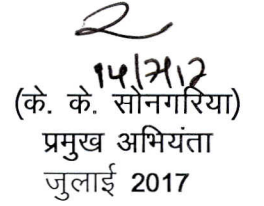 14/7/17
(के. के. सोनगरिया)
प्रमुख अभियंता
जुलाई 2017